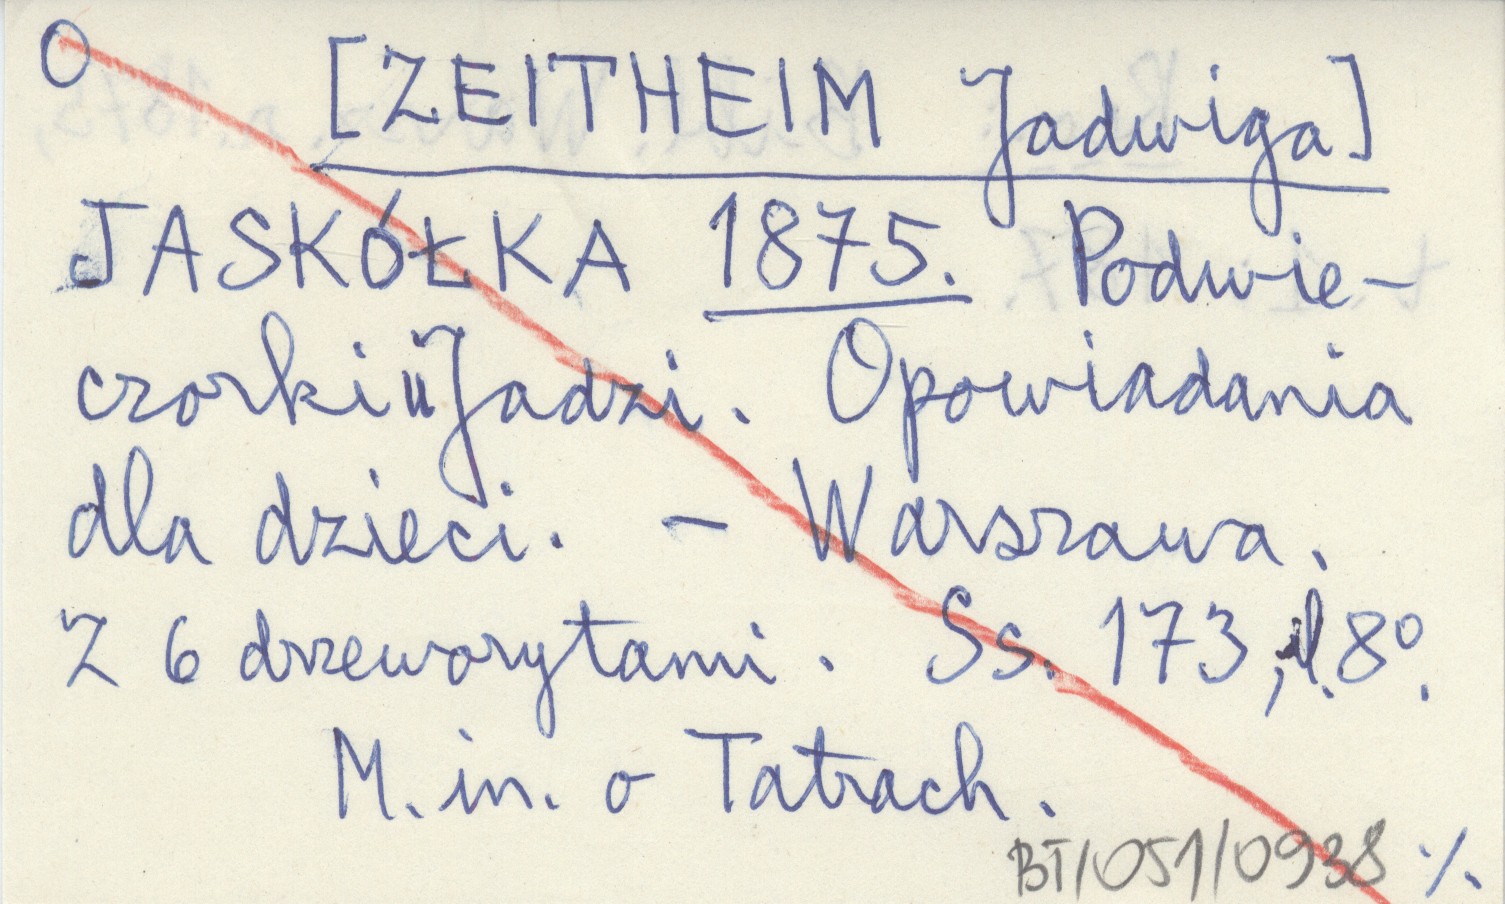 O [ZEITHEIM Jadwiga]
JASKÓŁKA 1875. Podwie-
czorki u Jadzi. Opowiadania
dla dzieci. - Warszawa.
Z 6 drzeworytami. Ss. 173, il. 8°.
M. in. o Tatrach.
BT/051/0938 ./.